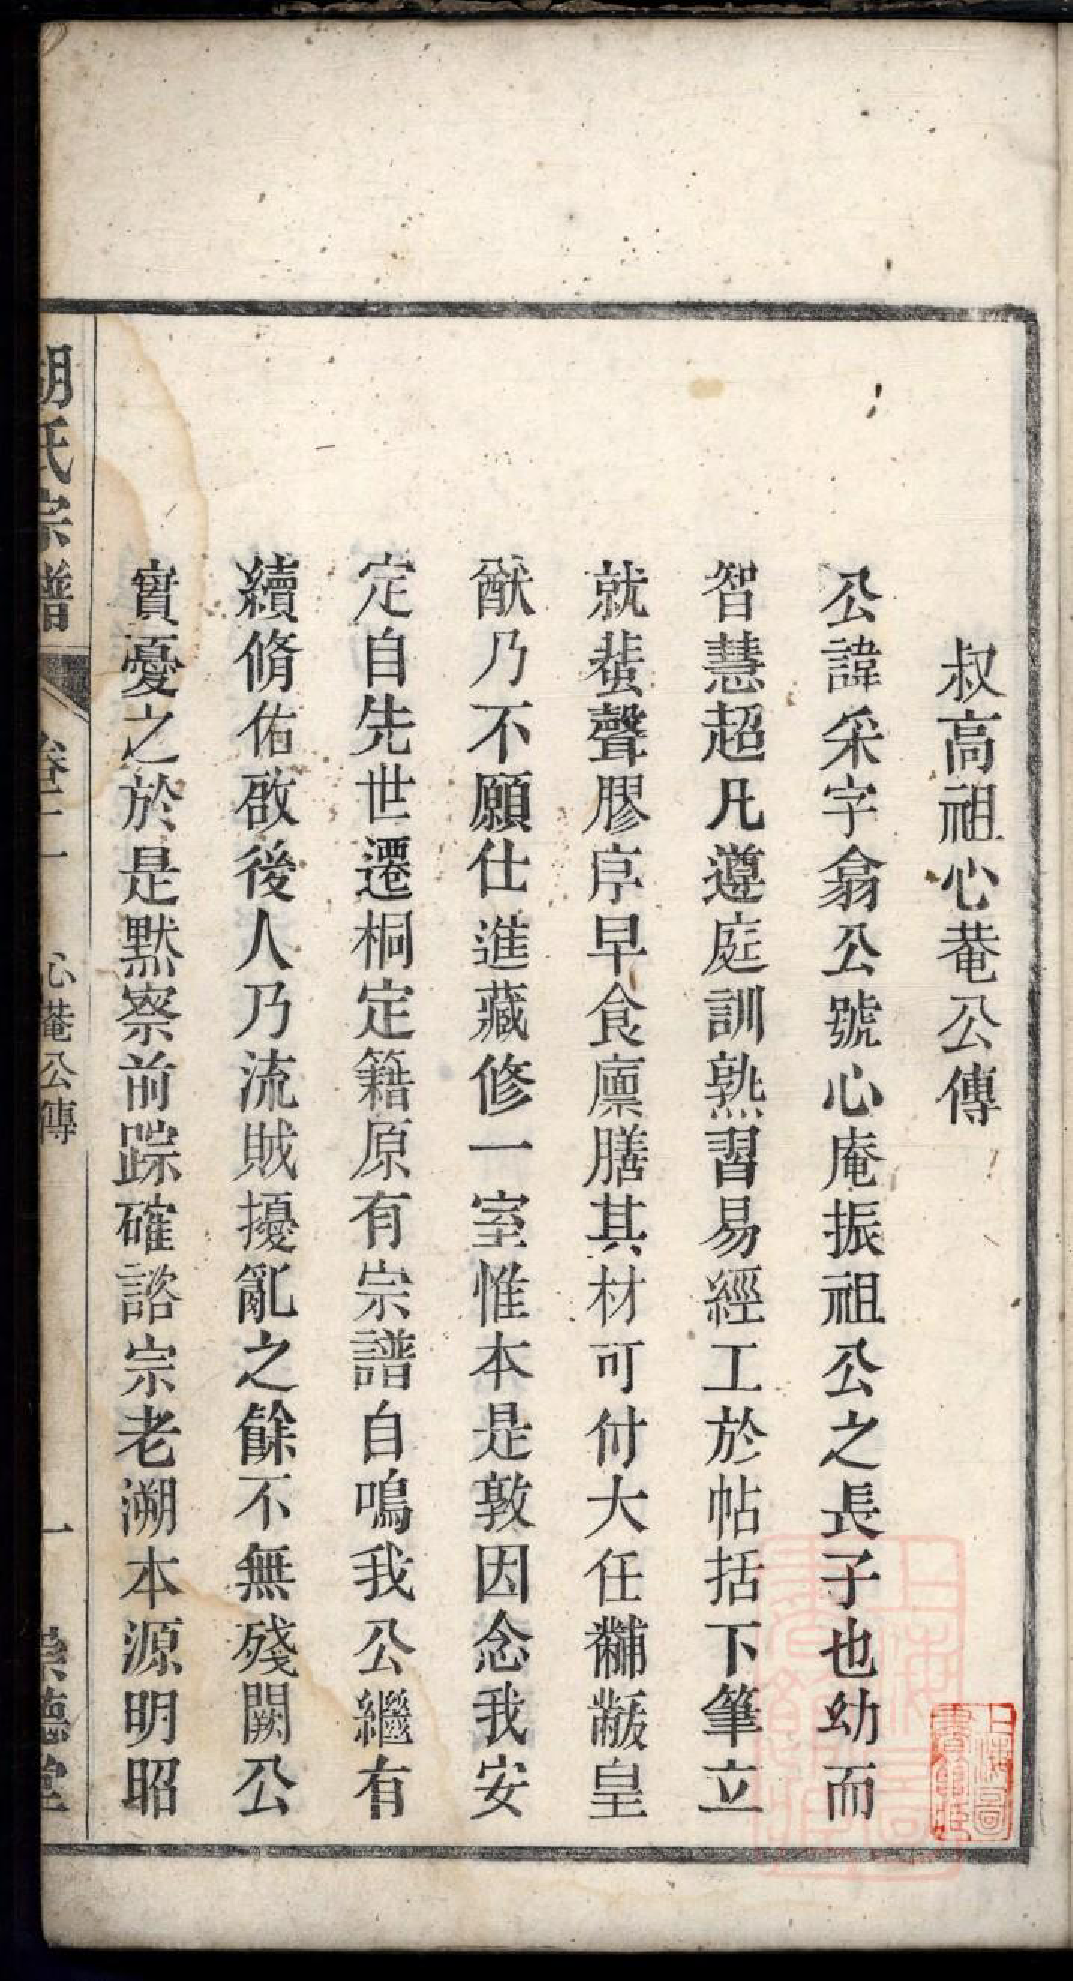 叔高祖心菴公傳
公諱采字翕公號心庵振祖公之長子也幼而
智慧超凡遵庭訓熟習易經工於帖括下筆立
就蜚聲膠序早食廩膳其材可付大任黼黻皇
猷乃不願仕進藏修一室惟本是敦因念我安
定自先世遷桐定籍原有宗譜自鳴我公繼有
續脩佑啟後人乃流賊擾亂之餘不無殘闕公
實憂之於是默察前踪確諮宗老溯本源明昭
胡氏宗譜
卷二
心菴公傳
一
崇德堂
上海圖書館藏